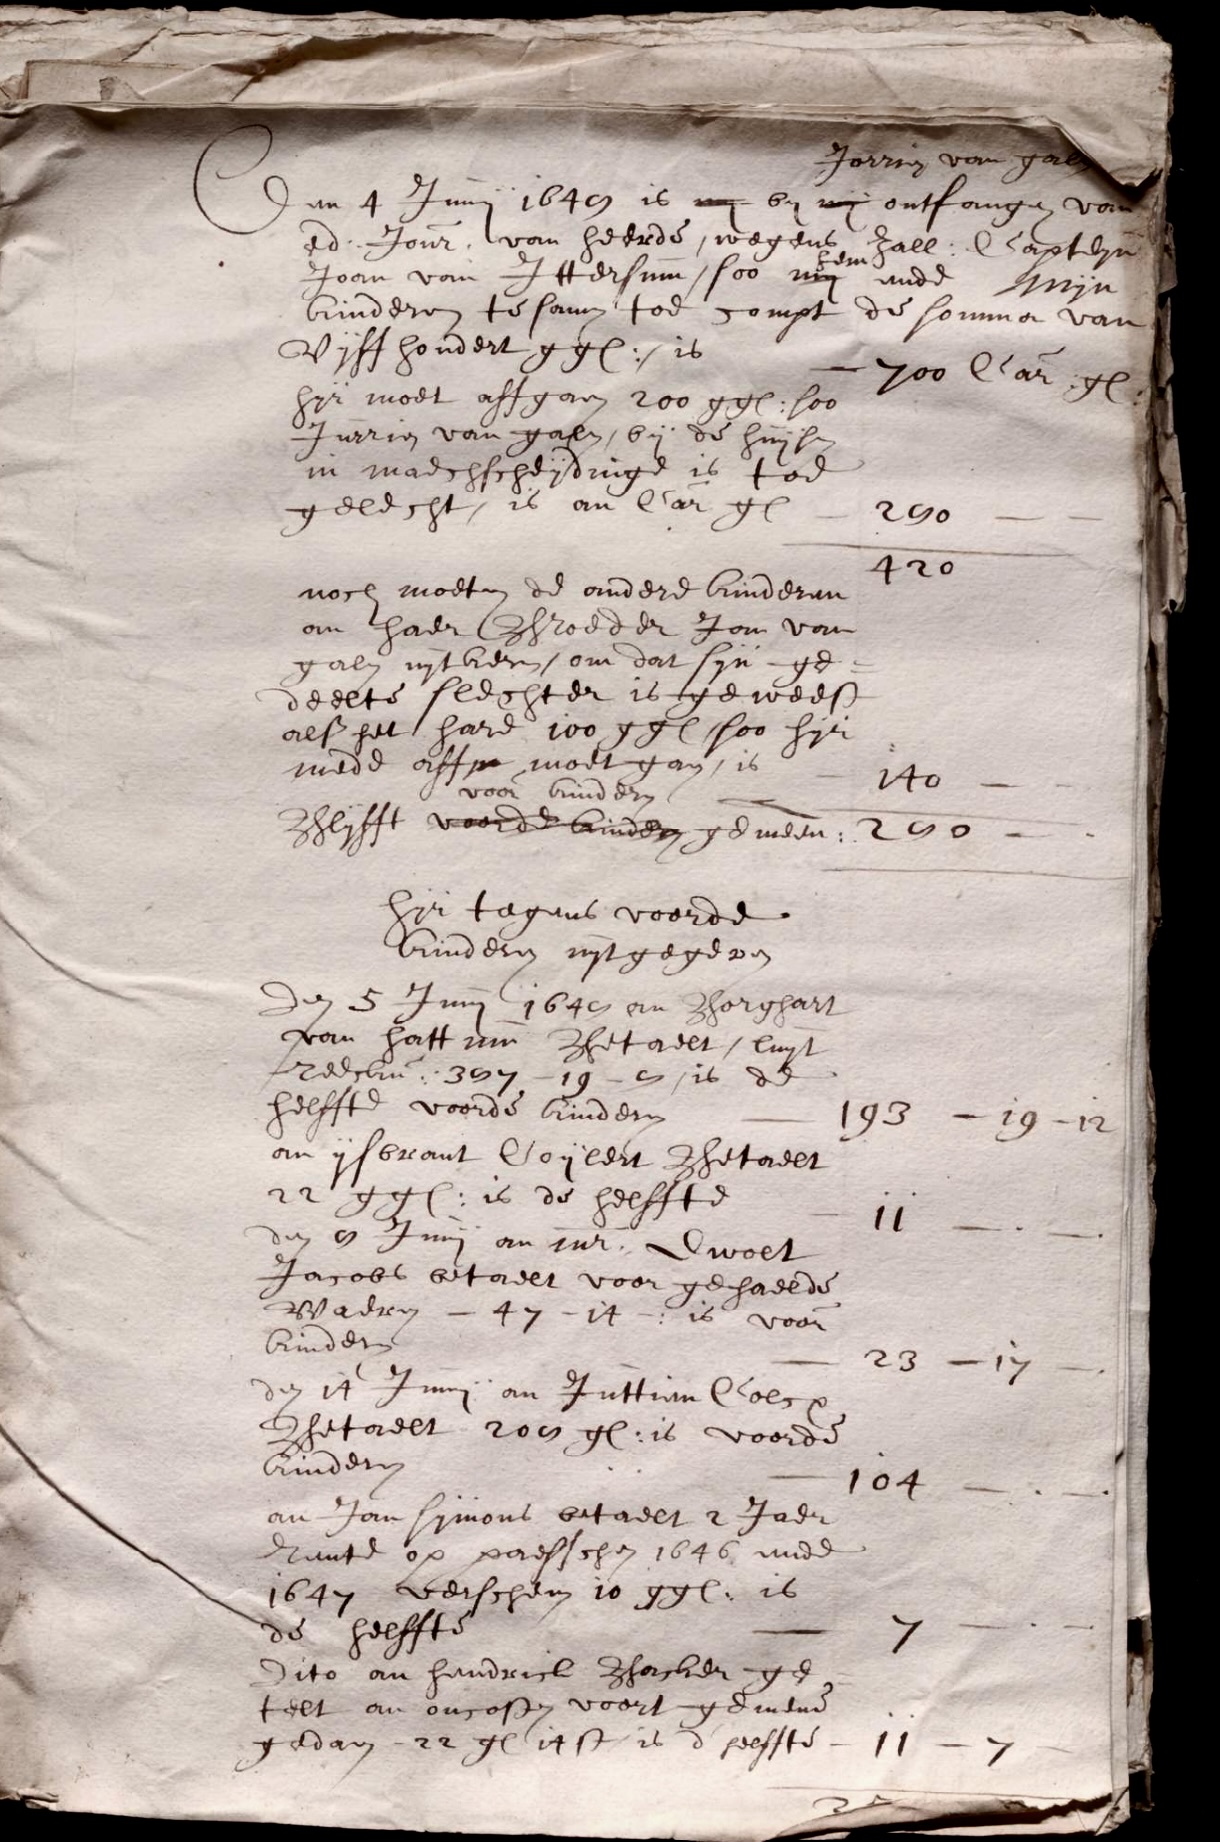 Jorrien van galen
Den 4 Junij 1648 is by ontfangen van
ed: Jour. van heerde, wegens zall: Capteijn
Joan van Ittersum, soo hem unde Mijn
kinderen te samen toe compt de somma van
Vijff hondert ggl:, is — 700 Car gl:
hijr moet affgaen 200 ggl: soo
Jurrien van galen, bij de huijsen
in maechscheijdinge is toe
gelecht, is an Car gl — 280 — —
420
noch moeten de andere kinderen
an haer Broeder Jan van
galen uijtkeren, om dat sijn ge=
deelte slechter is geweest
als het hare 100 ggl, soo hijr
mede aff moet gaen, is — 140 — —
voor kinderen
Blijfft voorde kinderen gemeen: 280 — -
hijr tegens voorde
kinderen uijtgegeven
Den 5 Junij 1648 an Borghart
van hattum Betaelt, luijt
reeckn: 387 - 19 - 8, is de
helffte voorde kinderen — 193 — 19 - 12
an ijsbrant Coijlert Betaelt
22 ggl: is de helffte — 11 — . —
den 8 Junij an Jur. Swolt
Jacobs betaelt voor gehaelde
Waeren — 47 - 14 -: is voor
kinderen — 23 — 17 —
den 14 Junij an Juttien Colcp
Betaelt 208 gl: is voorde
kinderen — 104 — . — .
an Jan Sijmons betaelt 2 Jaer
Rente op paesschen 1646 unde
1647 verschenen 10 ggl: is
de helffte — 7 — . —
Dito an hendrick Backer ge
telt an oncosten voort gemene
gedaen 22 gl 14 st, is d helffte — 11 — 7 —